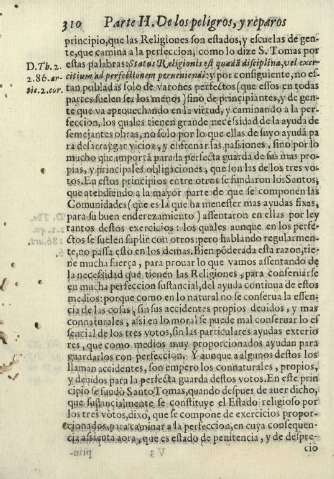 310 Parte II. De los peligros, y reparos
principio, que las Religiones son estados, y escuelas de gen-
te, que camina a la perfeccion, como lo dize S. Tomas por
D.Th.2. estas palabras: Status Religionis est quædã disciplina, vel exer-
2.86.ar- citium ad perfectionem perueniendi: y por consiguiente, no es-
tic.2.cor. tan pobladas solo de varones perfectos (que estos en todas
partes suelen ser los menos) sino de principiantes, y de gen-
te que va aprouechando en la virtud, y caminando a la per-
feccion, los quales tienen grande necessidad de la ayuda de
semejantes obras, no solo por lo que ellas de suyo ayudã pa
ra desarraygar vicios, y enfrenar las passiones, sino por lo
mucho que importã para la perfecta guarda de sus mas pro-
pias, y principales obligaciones, que son las de los tres vo-
tos. En estos principios entre otros se fundaron los Santos,
que atendiendo a la mayor parte de que se componen las
Comunidades (que es la que ha menester mas ayudas fixas,
para su buen enderezamiento) assentaron en ellas por ley
tantos destos exercicios: los quales aunque en los perfe-
ctos se suelen suplir con otros; pero hablando regularmen-
te, no passa esto en los demas. Bien põderada esta razon, tie-
ne mucha fuerça, para prouar lo que vamos assentando de
la necessidad que tienen las Religiones, para conseruarse
en mucha perfeccion sustancial, del ayuda continua de estos
medios: porque como en lo natural no se conserua la essen-
cia de las cosas, sin sus accidentes propios deuidos, y mas
connaturales, assi en lo moral se puede mal conseruar lo es
sencial de los tres votos, sin las particulares ayudas exterio
res, que como medios muy proporcionados ayudan para
guardarlos con perfeccion. Y aunque a algunos destos los
llaman accidentes, son empero los connaturales, propios,
y deuidos para la perfecta guarda destos votos. En este prin
cipio se fundò Santo Tomas, quando despues de auer dicho,
que sustancialmente se constituye el Estado religioso por
los tres votos, dixo, que se compone de exercicios propor-
cionados, para caminar a la perfeccion, en cuya consequen-
cia assienta aora, que es estado de penitencia, y de despre-
V 3 cio